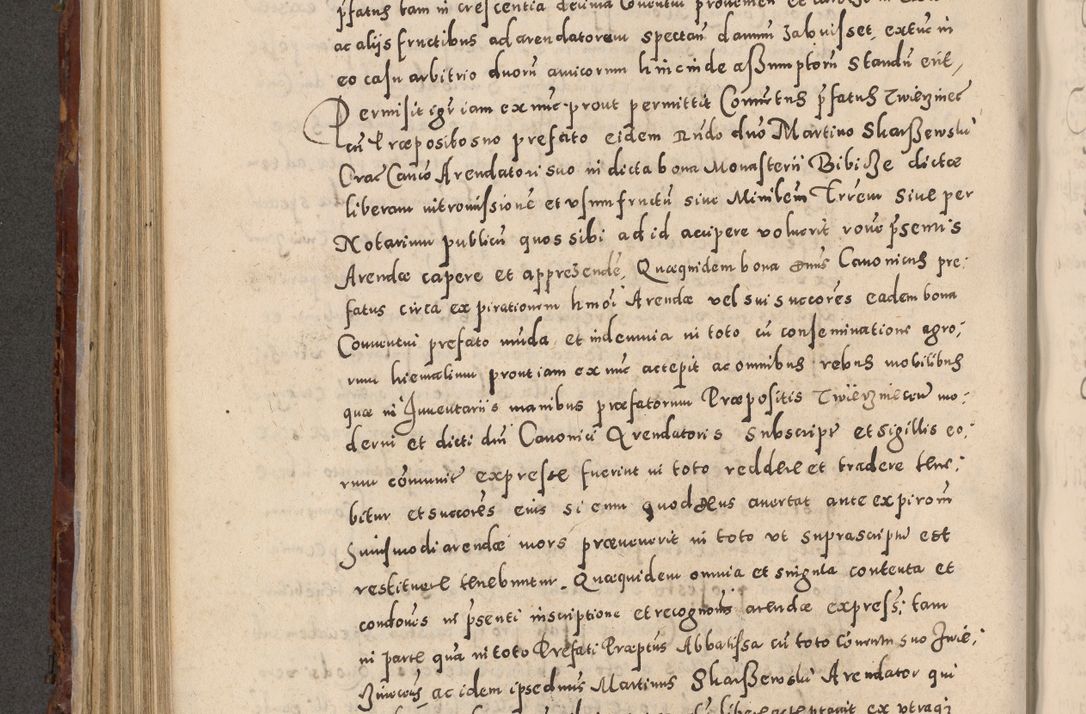 pfatus tam in crescentia decima Conventui provenien et
ac alijs fructibus ad arendatorem spectan damnu habuisset, extuc in
eo casu arbitrio duoru amicorum hincinde assumptoru standu erit,
Permisit igr iam ex nuc prout permittit Conventus pfatus Zwierzinec
cu Præposito suo prefato eidem Rndo dno Martino Skarszewski
Crac Canco Arendatori suo in dicta bona Monasterii Bibicze dictæ
liberam intromissione et usumfructu sive Ministem Terrem sive per
Notarium publicu quos sibi ad id accipere voluerit rone psentis
Arendæ capere et apprehende, Quæquidem bona dnus Canonicus pre:
fatus circa expirationem hmoi Arendæ vel sui succores eadem bona
Conventui prefato nuda et indemnia in toto cu conseminatione agro:
rum hiemalium prout iam ex nuc accepit ac omnibus rebus mobilibus
quæ in Inventariis manibus præfatorum Præpositis Zwierzinecen mo:
derni et dicti dni Canonici Arendatoris subscript et sigillis eo:
rum comunit expresse fuerint in toto reddere et tradere tene:
bitur et succores eius si enim quod Deus avertat ante expirom
huiusmodi arendæ mors prævenerit in toto ut suprascriptu est
restituere tenebuntur. Quæquidem omnia et singula contenta et
condones in psenti inscriptione et recognons arendæ express: tam
in parte qua in toto Prefati Præptus Abbatissa cu toto Conven suo Zwie:
Zinecens, ac idem ipse dnus Martinus Skarszewski Arendator qui